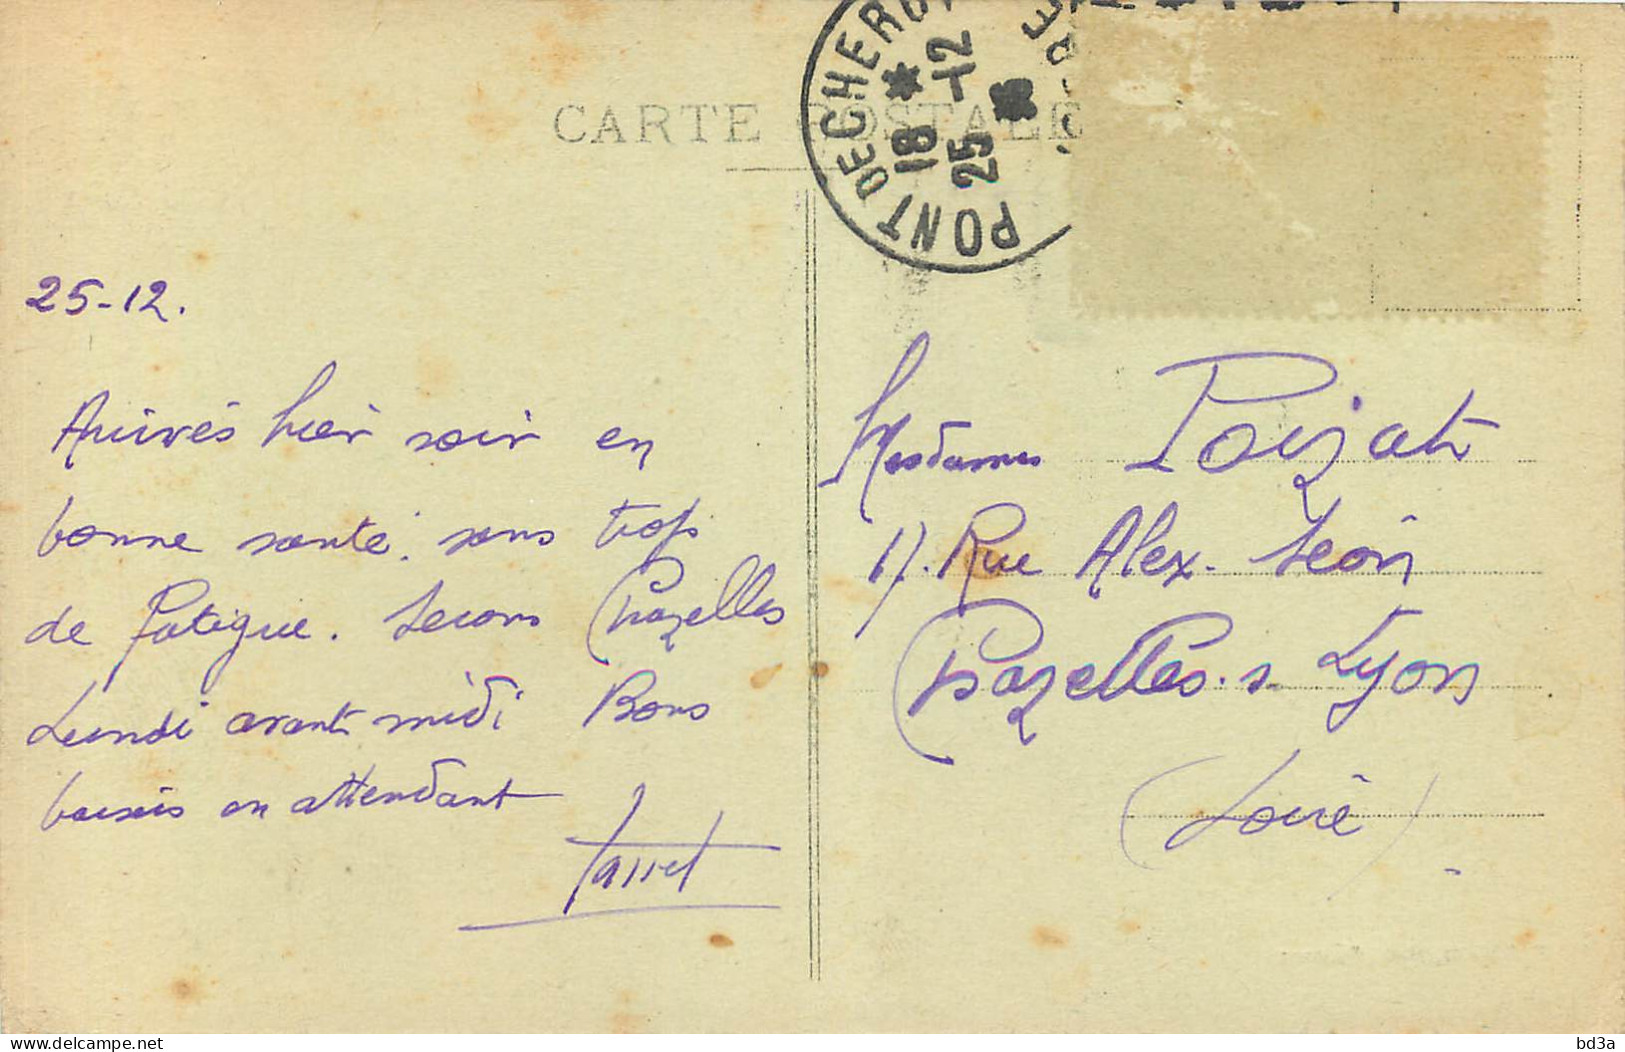 CARTE POSTALE
PONT DE CHERUY
18 * 25 -12
25 *
25-12.
Arrivés hier soir en
bonne santé. sans trop
de fatigue. Serons Chazelles
Lundi avant midi Bons
baisers en attendant
Mesdames Poizat
17. Rue Alex. Séon
Chazelles. s. Lyon
(Loire)
delcampe.net
bd3a